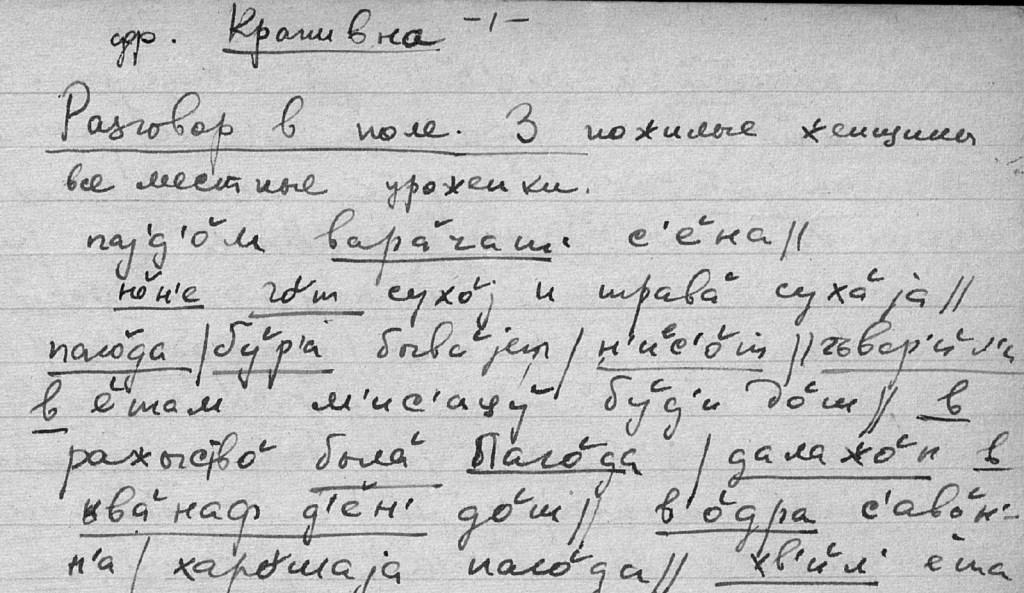 дер. Крапивна -1-
Разговор в поле. 3 пожилые женщины
все местные уроженки.
пајд'о́м вара́чат' с'е́на//
но́н'е го́т сухо́ј и трава́ суха́ја//
паго́да/бу́р'а быва́јет/н'ис'о́т//гъвар'и́л'и
в е́там м'ис'ацу́ бу́д'и до́ш// в
ражыство́ была́ паго́да/далажо́н в
ыва́наф д'е́н' до́ш// в'о́дра с'аво́н'-
н'а/харо́шаја паго́да// хв'и́л' е́та